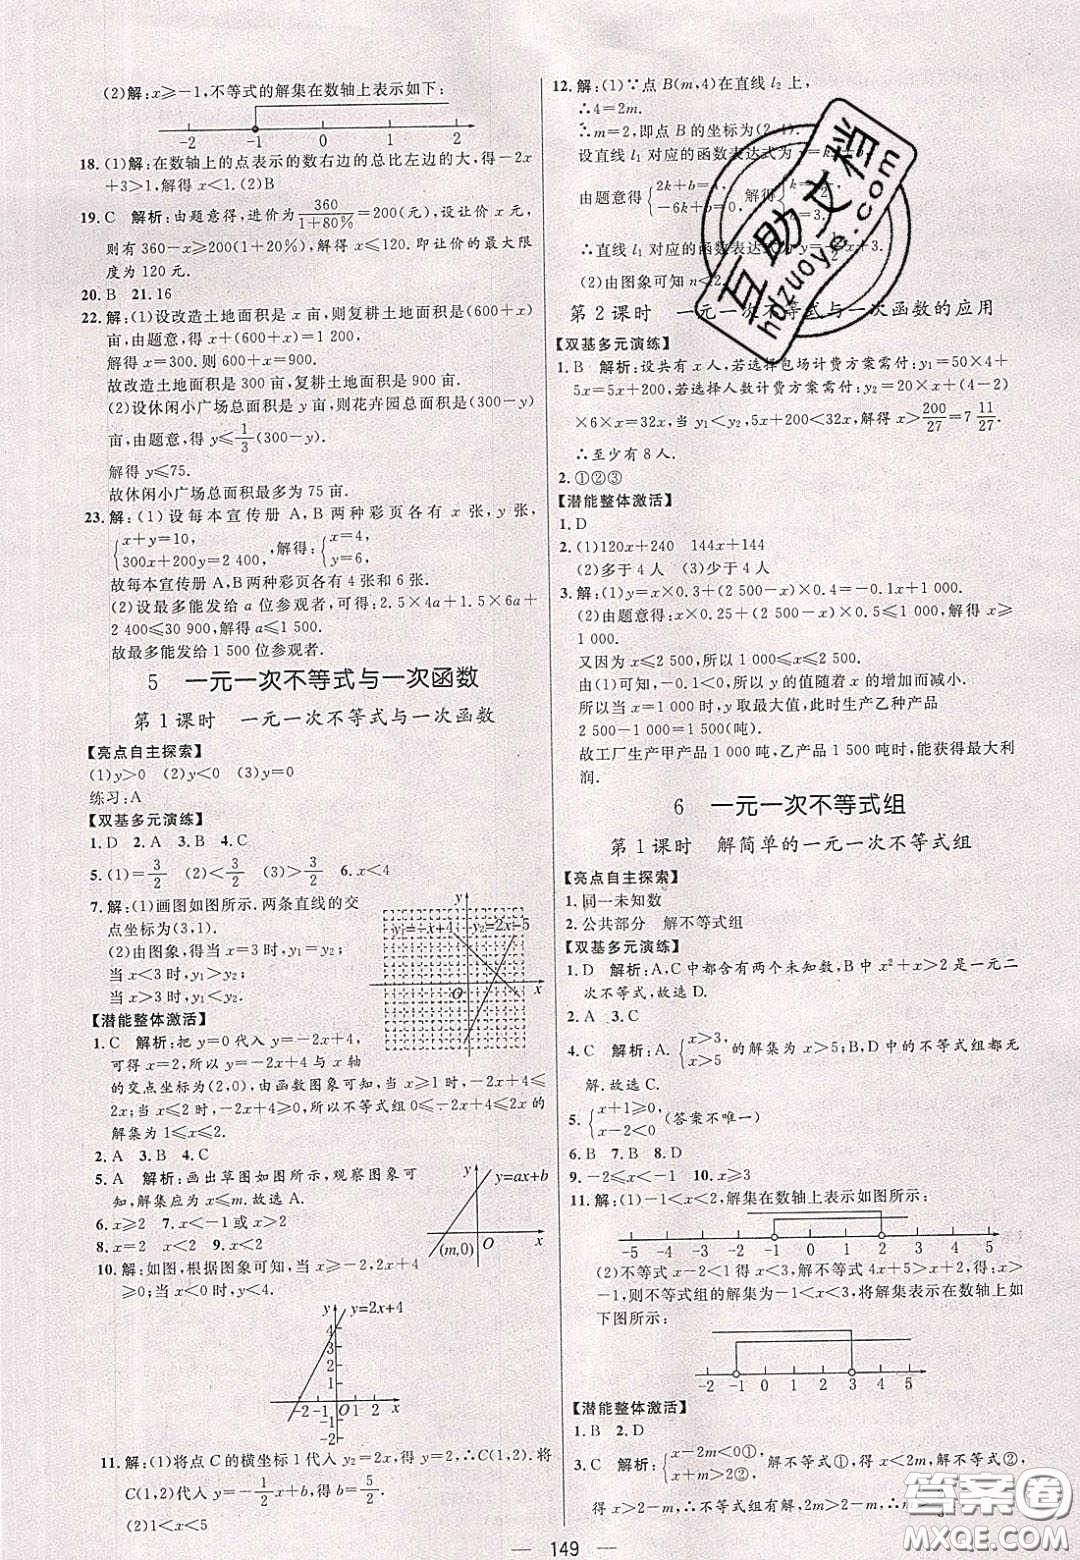 (2)解:x≥-1,不等式的解集在数轴上表示如下:
-2 -1 0 1 2
18. (1)解:在数轴上的点表示的数右边的总比左边的大,得-2x
+3>1,解得 x<1. (2)B
19. C 解析:由题意得,进价为 360/(1+80%) =200(元),设让价 x 元,
则有 360-x≥200(1+20%),解得 x≤120. 即让价的最大限
度为 120 元.
20. B 21. 16
22. 解:(1)设改造土地面积是 x 亩,则复耕土地面积是(600+x)
亩,由题意,得 x+(600+x)=1200,
解得 x=300. 则 600+x=900.
故改造土地面积是 300 亩,复耕土地面积是 900 亩.
(2)设休闲小广场总面积是 y 亩,则花卉园总面积是(300-y)
亩,由题意,得 y≤1/3(300-y).
解得 y≤75.
故休闲小广场总面积最多为 75 亩.
23. 解:(1)设每本宣传册 A,B 两种彩页各有 x 张,y 张,
{x+y=10, 300x+200y=2 400, 解得:{x=4, y=6.
故每本宣传册 A,B两种彩页各有 4 张和 6 张.
(2)设最多能发给 a 位参观者,可得:2.5×4a+1.5×6a+
2 400≤30 900,解得 a≤1 500.
故最多能发给 1 500 位参观者.
5 一元一次不等式与一次函数
第1课时 一元一次不等式与一次函数
【亮点自主探索】
(1)y>0 (2)y<0 (3)y=0
练习:A
【双基多元演练】
1. D 2. A 3. B 4. C
5. (1)=3/2 (2)<3/2 (3)>3/2 6. x<4
7. 解:(1)画图如图所示. 两条直线的交
点坐标为(3,1).
(2)由图象,得当 x=3 时,y₁=y₂;
当 x<3 时,y₁>y₂;
当 x>3 时,y₁<y₂.
y y₁=-x+4 y₂=2x-5 O x
【潜能整体激活】
1. C 解析:把 y=0 代入 y=-2x+4,
可得 x=2,所以一次函数 y=-2x+4 与 x 轴
的交点坐标为(2,0),由函数图象可知,当 x≥1 时,-2x+4≤
2x;当 x≤2 时,-2x+4≥0,所以不等式组 0≤-2x+4≤2x 的
解集为 1≤x≤2.
2. A 3. B 4. C
5. A 解析:画出草图如图所示,观察图象可
知,解集应为 x≤m. 故选 A.
y y=ax+b (m,0) O x
6. x≥2 7. x<-1 或 x>2
8. x=2 x<2 9. x<2
10. 解:如图,根据图象可知,当 x≥-2,2x+4
≥0;当 x<0 时,y<4.
y y=2x+4
4 3 2 1
-2 -1 O 1 2 x
-1
-2
11. 解:(1)将点 C 的横坐标 1 代入 y₂=2x,得 y=2,∴C(1,2). 将
C(1,2)代入 y=-1/2x+b,得 b=5/2.
(2)1<x<5
12. 解:(1)∵点 B(m,4)在直线 l₂ 上,
∴4=2m.
∴m=2,即点 B 的坐标为(2,4).
设直线 l₁ 对应的函数表达式为
由题意得{2k+b=4, -6k+b=0, 解得
∴直线 l₁ 对应的函数表达式为 x+3.
(2)由图象可知 n<2.
第2课时 一元一次不等式与一次函数的应用
【双基多元演练】
1. B 解析:设共有 x 人,若选择包场计费方案需付:y₁=50×4+
5x=5x+200,若选择人数计费方案需付:y₂=20×x+(4-2)
×6×x=32x,当 y₁<y₂,5x+200<32x,解得 x>200/27=7 11/27.
∴至少有 8 人.
2. ①②③
【潜能整体激活】
1. D
2. (1)120x+240 144x+144
(2)多于 4 人 (3)少于 4 人
3. 解:(1)y=x×0.3+(2 500-x)×0.5=-0.2x+1 250.
(2)由题意得:x×0.25+(2 500-x)×0.5≤1 000,解得 x≥
1 000.
又因为 x≤2 500,所以 1 000≤x≤2 500.
由(1)可知,-0.1<0,所以 y 的值随着 x 的增加而减小.
所以当 x=1 000 时,y 取最大值,此时生产乙种产品
2 500-1 000=1 500(吨).
故工厂生产甲产品 1 000 吨,乙产品 1 500 吨时,能获得最大利
润.
6 一元一次不等式组
第1课时 解简单的一元一次不等式组
【亮点自主探索】
1. 同一未知数
2. 公共部分 解不等式组
【双基多元演练】
1. D 解析:A,C 中都含有两个未知数,B中 x²+x>2 是一元二
次不等式,故选 D.
2. A 3. C
4. C 解析:A. {x>3, x>5 的解集为 x>5;B,D 中的不等式组都无
解. 故选 C.
5. {x+1≥0, x-2<0 (答案不唯一)
6. D 7. B 8. D
9. -2≤x<-1 10. x≥3
11. 解:(1)-1<x<2,解集在数轴上表示如图所示:
-5 -4 -3 -2 -1 0 1 2 3 4 5
(2)不等式 x-2<1得 x<3,解不等式 4x+5>x+2,得:x>
-1,则不等式组的解集为-1<x<3,将解集表示在数轴上如
下图所示:
-2 -1 0 1 2 3 4 5
【潜能整体激活】
1. B 2. D
3. C 解析:{x-2m<0①, x+m>2②, 解不等式①,得 x<2m,解不等式②,
得 x>2-m,∴不等式组有解,2m>2-m,∴
149
互助文档
hdzuoye.com
答案圈
MXQE.COM